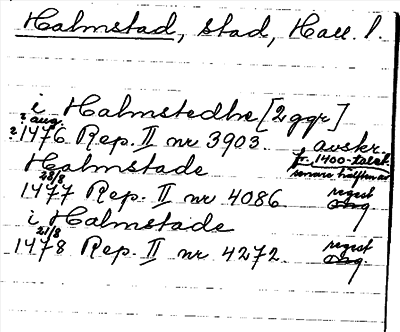 Halmstad, stad, Hall. l.
i Halmstedhe [2 ggr]
? aug.
? 1476 Rep. II nr 3903 avskr.
fr. 1400-talets
senare hälften
Halmstade
28/8
1477 Rep. II nr 4086 regest
orig.
i Halmstade
21/8
1478 Rep. II nr 4272 regest
orig.